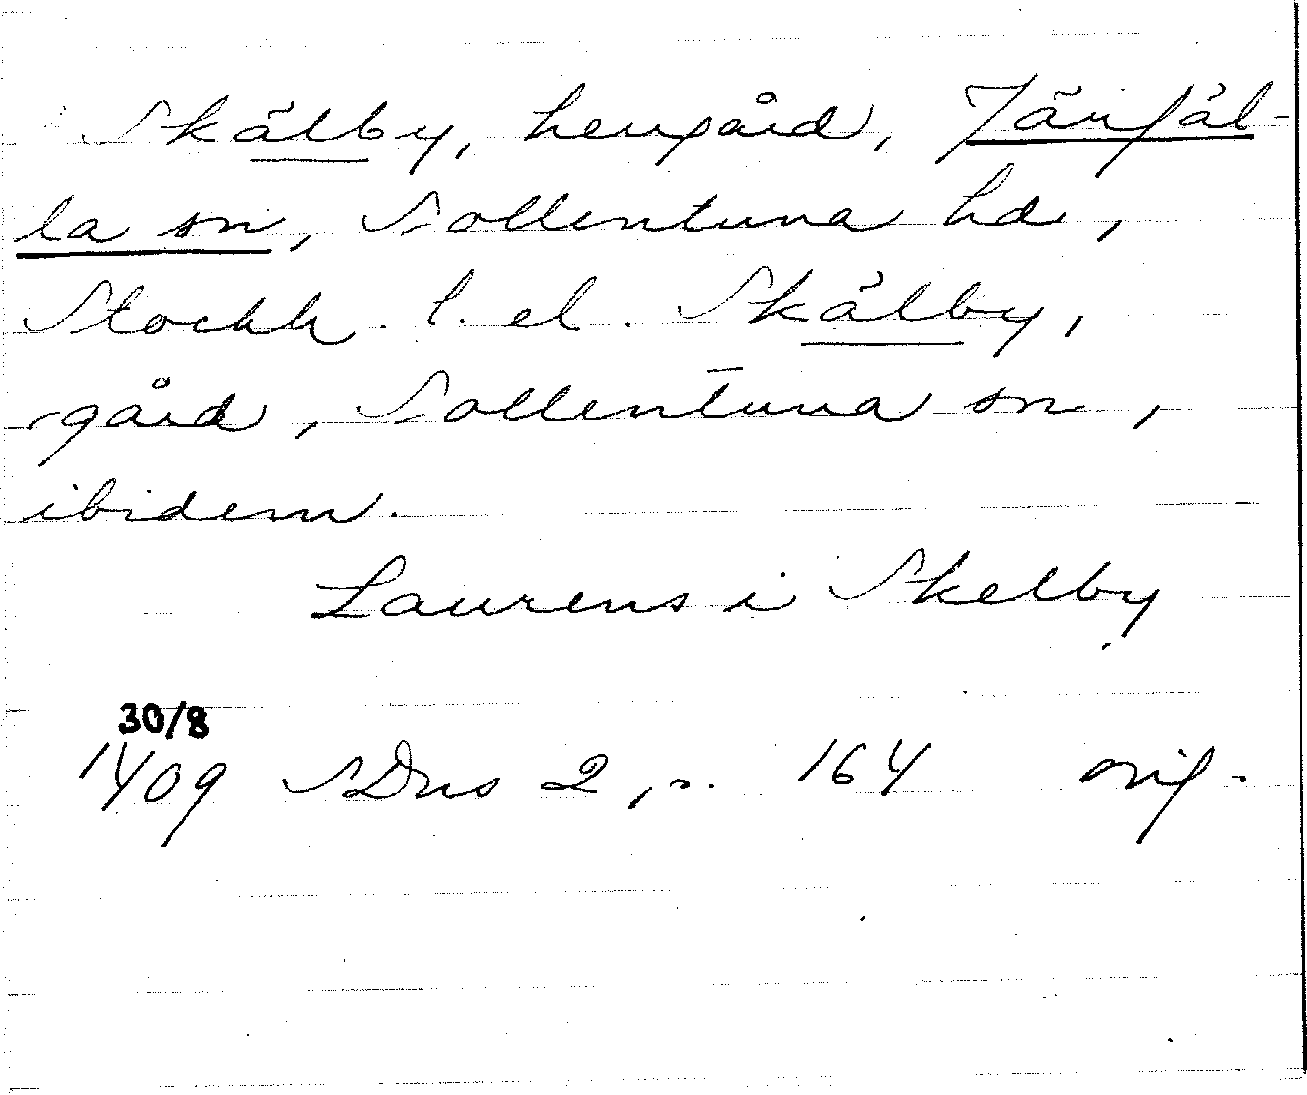 Skälby, herrgård, Järfäl-
la sn, Sollentuna hd,
Stockh. l. el. Skälby,
gård, Sollentuna sn,
ibidem.
Laurens i Skelby
30/8
1409 SDns 2, s. 164 orig.